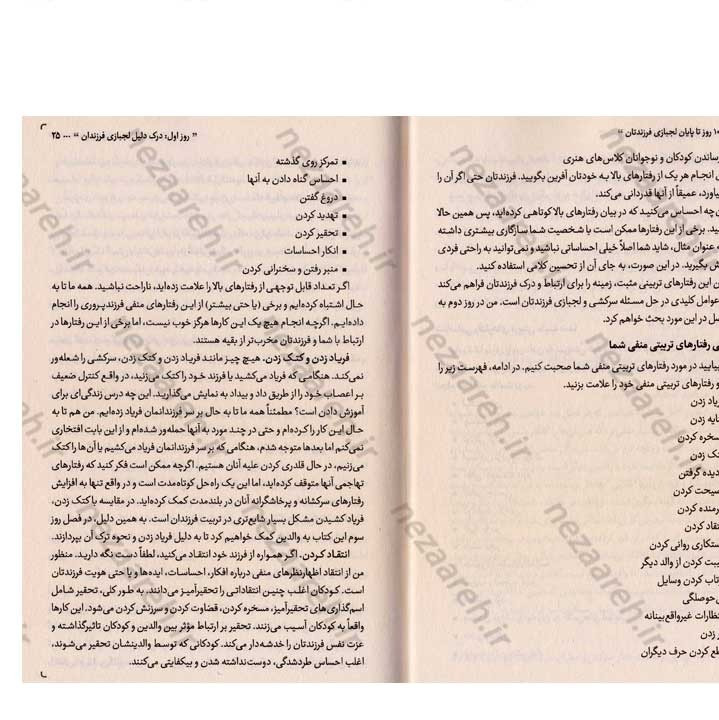 ۱۰ روز تا پایان لجبازی فرزندتان “
رساندن کودکان و نوجوانان کلاس‌های هنری
انجام هر یک از رفتارهای بالا به خودتان آفرین بگویید. فرزندتان حتی اگر آن را
عمیقاً از آنها قدردانی می‌کند.
چه احساس می‌کنید که در بیان رفتارهای بالا کوتاهی کرده‌اید، پس همین حالا
برخی از این رفتارها ممکن است با شخصیت شما سازگاری بیشتری داشته
عنوان مثال، شاید شما اصلاً خیلی احساساتی نباشید و نمی‌توانید به راحتی فردی
بگیرید. در این صورت، به جای آن از تحسین کلامی استفاده کنید.
این رفتارهای تربیتی مثبت، زمینه را برای ارتباط و درک فرزندتان فراهم می‌کند
عوامل کلیدی در حل مسئله سرکشی و لجبازی فرزندتان است. من در روز دوم به
در این مورد بحث خواهم کرد.
رفتارهای تربیتی منفی شما
بیایید در مورد رفتارهای تربیتی منفی شما صحبت کنیم. در ادامه، فهرست زیر را
و رفتارهای تربیتی منفی خود را علامت بزنید.
زدن
زدن
کردن
زدن
گرفتن
کردن
کردن
کردن
روانی کردن
کردن از والد دیگر
کردن وسایل
غیرواقع‌بینانه
زدن
کردن حرف دیگران
” روز اول: درک دلیل لجبازی فرزندان “ ... ۲۵
▪ تمرکز روی گذشته
▪ احساس گناه دادن به آنها
▪ دروغ گفتن
▪ تهدید کردن
▪ تحقیر کردن
▪ انکار احساسات
▪ منبر رفتن و سخنرانی کردن
اگر تعداد قابل توجهی از رفتارهای بالا را علامت زده‌اید، ناراحت نباشید. همه ما تا به
حال اشتباه کرده‌ایم و برخی (یا حتی بیشتر) از این رفتارهای منفی فرزندپروری را انجام
داده‌ایم. اگرچه انجام هیچ یک این کارها هرگز خوب نیست، اما برخی از این رفتارها در
ارتباط با شما و فرزندتان مخرب‌تر از بقیه هستند.
فریاد زدن و کتک زدن. هیچ چیز مانند فریاد زدن و کتک زدن، سرکشی را شعله‌ور
نمی‌کند. هنگامی که فریاد می‌کشید یا فرزند خود را کتک می‌زنید، در واقع کنترل ضعیف
بر اعصاب خود را از طریق داد و بیداد به نمایش می‌گذارید. این چه درس زندگی‌ای برای
آموزش دادن است؟ مطمئناً همه ما تا به حال بر سر فرزندانمان فریاد زده‌ایم. من هم تا به
حال این کار را کرده‌ام و حتی در چند مورد به آنها حمله‌ور شده‌ام و از این بابت افتخاری
نمی‌کنم اما بعدها متوجه شدم، هنگامی که بر سر فرزندانمان فریاد می‌کشیم یا آن‌ها را کتک
می‌زنیم، در حال قلدری کردن علیه آنان هستیم. اگرچه ممکن است فکر کنید که رفتارهای
تهاجمی آنها را متوقف کرده‌اید، اما این یک راه‌حل کوتاه‌مدت است و در واقع تنها به افزایش
رفتارهای سرکشانه و پرخاشگرانه آنان در بلندمدت کمک کرده‌اید. در مقایسه با کتک زدن،
فریاد کشیدن مشکل بسیار شایع‌تری در تربیت فرزندان است. به همین دلیل، در فصل روز
سوم این کتاب به والدین کمک خواهیم کرد تا به دلیل فریاد زدن و نحوه ترک آن بپردازند.
انتقاد کردن. اگر همواره از فرزند خود انتقاد می‌کنید، لطفاً دست نگه دارید. منظور
من از انتقاد اظهارنظرهای منفی درباره افکار، احساسات، ایده‌ها و یا حتی هویت فرزندتان
است. کودکان اغلب چنین انتقاداتی را تحقیرآمیز می‌دانند. به طور کلی، تحقیر شامل
اسم‌گذاری‌های تحقیرآمیز، مسخره کردن، قضاوت کردن و سرزنش کردن می‌شود. این کارها
واقعاً به کودکان آسیب می‌زنند. تحقیر بر ارتباط مؤثر بین والدین و کودکان تاثیر گذاشته و
عزت نفس فرزندتان را خدشه‌دار می‌کند. کودکانی که توسط والدینشان تحقیر می‌شوند،
اغلب احساس طردشدگی، دوست‌نداشته شدن و بی‌کفایتی می‌کنند.
nezaareh.ir
nezaareh.ir
nezaareh.ir
nezaareh.ir
nezaareh.ir
nezaareh.ir